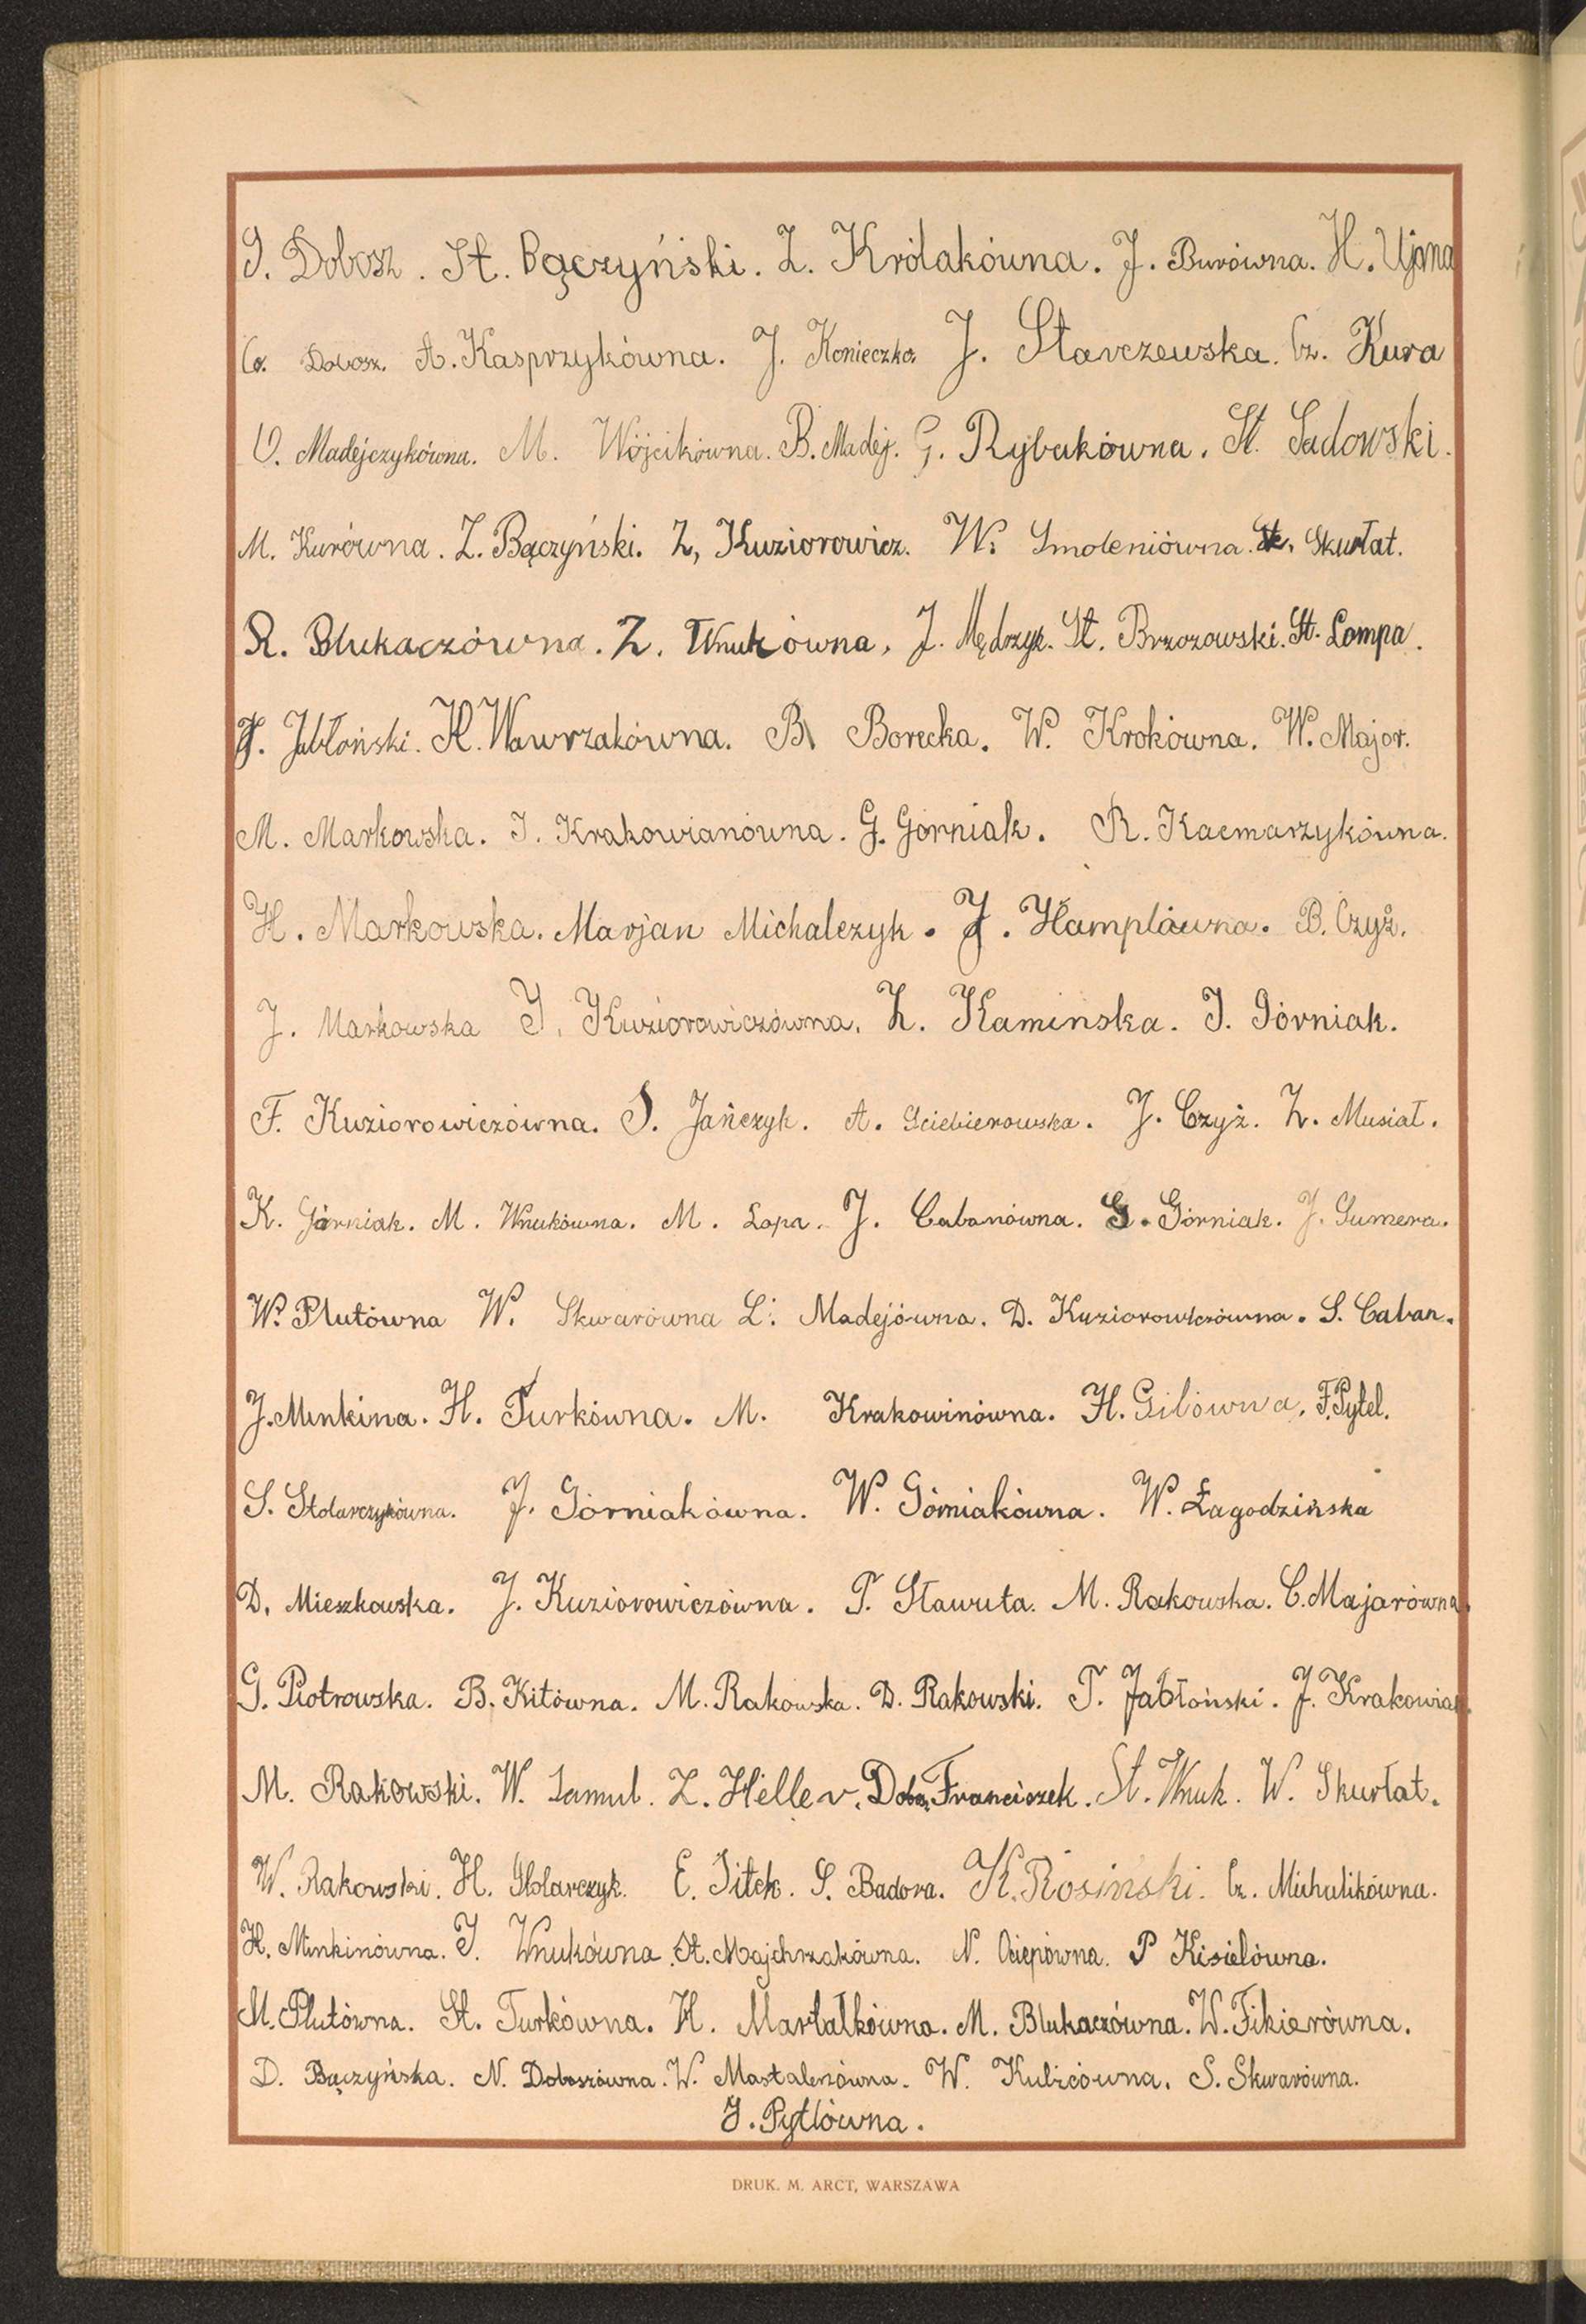 J. Dobosz. St. Bączyński. Z. Królakówna. J. Burówna. H. Ujma
Cz. Dobosz. A. Kasprzykówna. J. Konieczko J. Starczewska. Cz. Kura
O. Madejczykówna. M. Wójcikówna. B. Madej. G. Rybakówna. St. Sadowski.
M. Kurówna. Z. Bączyński. Z, Kuziorowicz. W. Smoleniówna. St. Skurłat.
R. Blukaczówna. Z. Wnukówna, J. Mędrzyk. St. Brzozowski. St. Lompa.
J. Jabłoński. H. Wawrzakówna. B. Borecka. W. Krokówna. W. Major.
M. Markowska. I. Krakowianówna. G. Górniak. R. Kacmarzykówna.
H. Markowska. Marjan Michalczyk. J. Hamplówna. B. Czyż.
J. Markowska J. Kuziorowiczówna. Z. Kaminska. J. Górniak.
F. Kuziorowiczówna. S. Jańczyk. A. Sciebierowska. J. Czyż. Z. Musiał.
K. Górniak. M. Wnukówna. M. Lopa. J. Cabanówna. G. Górniak. J. Gumera.
W. Plutówna W. Skwarówna L. Madejówna. D. Kuziorowiczówna. S. Caban.
J. Minkina. H. Turkówna. M. Krakowinówna. H. Gilówna, F. Pytel.
S. Stolarczykówna. J. Górniakówna. W. Górniakówna. W. Łagodzińska
D. Mieszkowska. J. Kuziorowiczówna. T. Sławuta. M. Rakowska. C. Majarówna.
G. Piotrowska. B. Kitówna. M. Rakowska. D. Rakowski. T. Jabłoński. J. Krakowian.
M. Rakowski. W. Samul. Z. Heller. Doba Franciszek. St. Wnuk. W. Skurłat.
W. Rakowski. H. Stolarczyk. E. Sitek. S. Badora. K. Rosiński. Cz. Michalikówna.
H. Minkinówna. J. Wnukówna. St. Majchrzakówna. N. Ociepówna. P Kisielówna.
M. Plutówna. St. Turkówna. H. Martałkówna. M. Blukaczówna. W. Fikierówna.
D. Bączyńska. N. Doboszówna. W. Mastalerzówna. W. Kubicówna. S. Skwarówna.
J. Pytlówna.
DRUK. M. ARCT, WARSZAWA